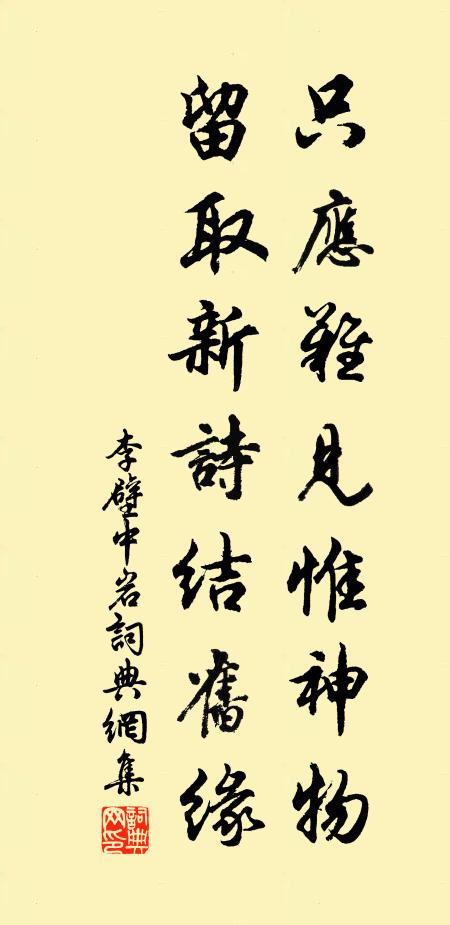 只應難見惟神物
留取新詩結舊緣
李壁中岩詞典網集
詞典网印